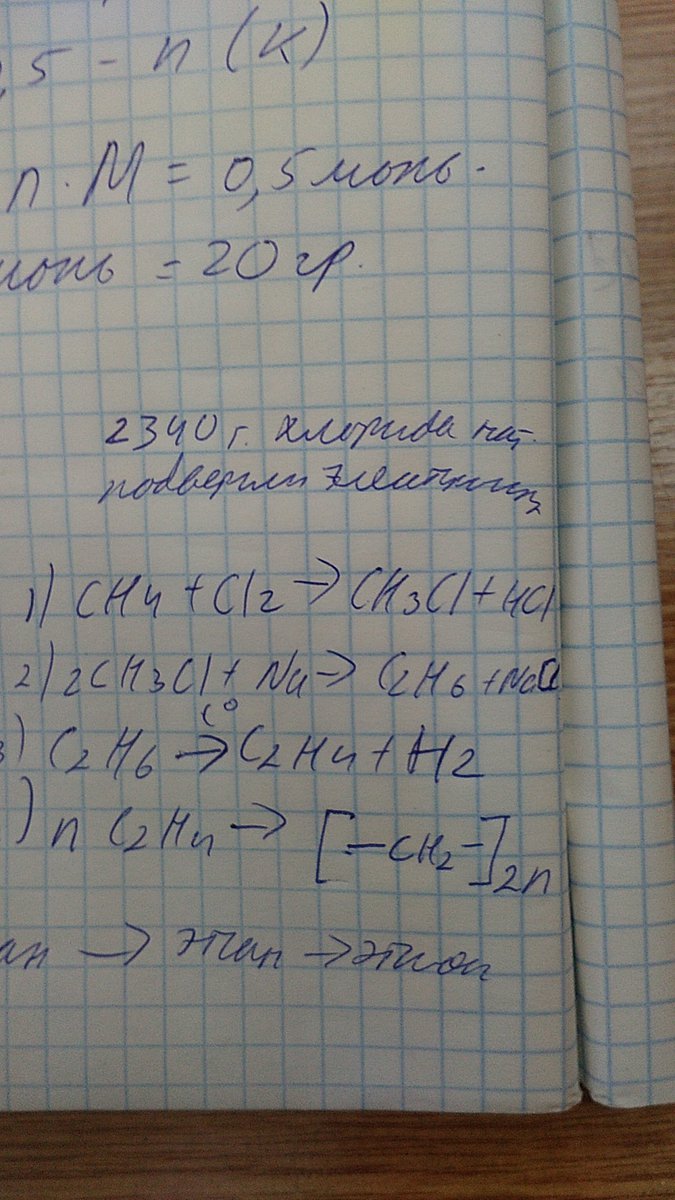 ,5 - n (K)
n · M = 0,5 моль ·
моль = 20 гр.
2340 г. хлорида нат.
подвергли
1) CH4 + Cl2 → CH3Cl + HCl
2) 2CH3Cl + Na → C2H6 + NaCl
3) C2H6 t° → C2H4 + H2
) n C2H4 → [-CH2-]2n
ан → этан →